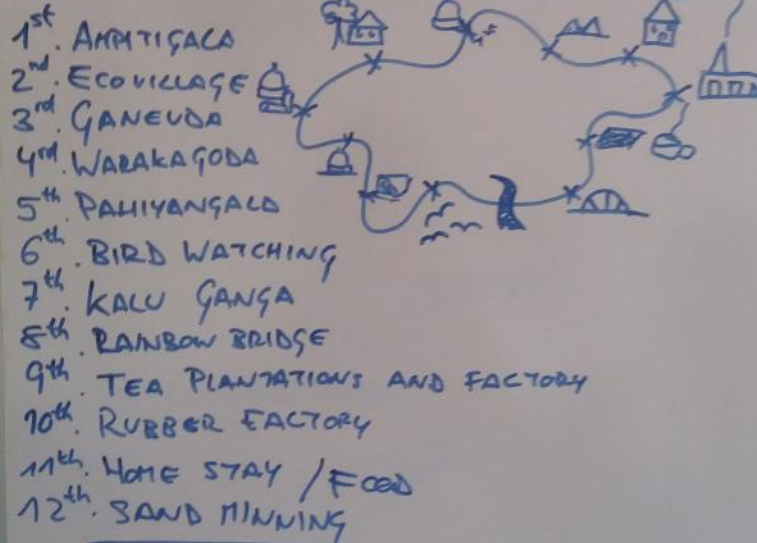 1st. AMPITIGALA
2nd. ECOVILLAGE
3rd. GANEUDA
4rd. WARAKAGODA
5th. PAHIYANGALA
6th. BIRD WATCHING
7th. KALU GANGA
8th. RAINBOW BRIDGE
9th. TEA PLANTATIONS AND FACTORY
10th. RUBBER FACTORY
11th. HOME STAY / FOOD
12th. SAND MINNING
1st